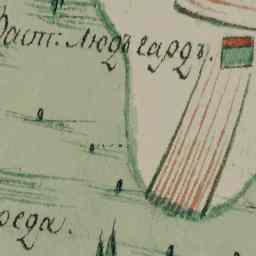 Фаст: Людъгардъ.
реда.